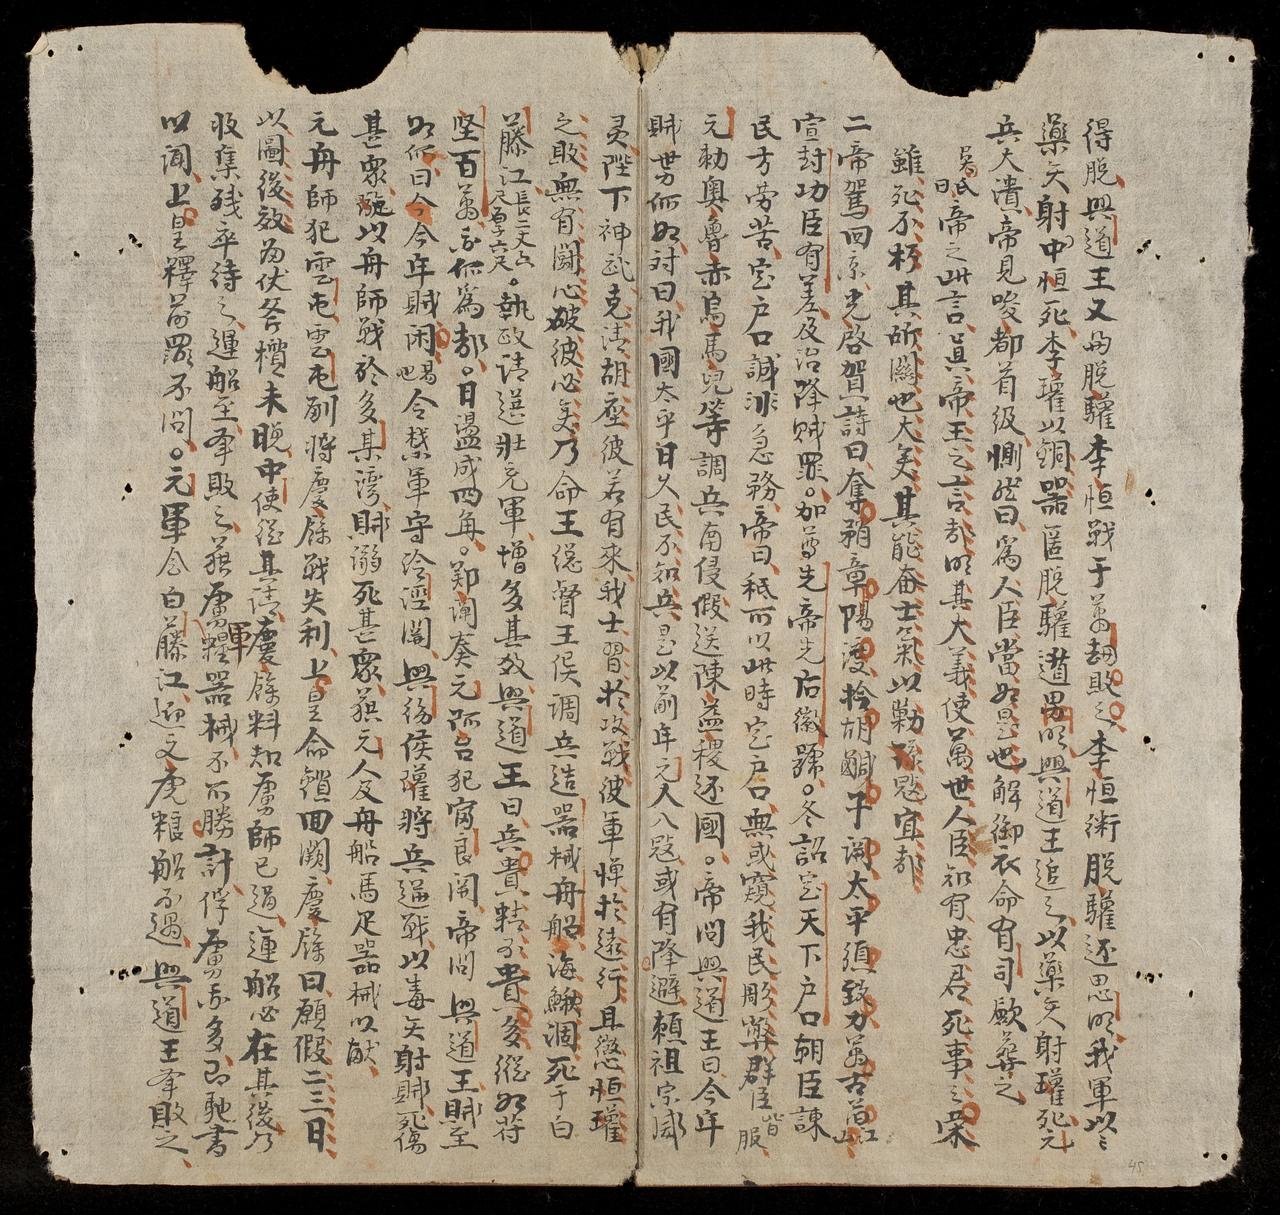 得脫興道王又與脫驩李恒戰于萬劫敗之李恒衛脫驩还思明我軍以
藥矢射中恒死李瓘以銅器匿脫驩遁思明興道王追之以藥矢射瓘死元
兵大潰帝見唆都首級惻然曰為人臣當如是也解御衣命有司歛葬之
吳氏曰帝之此言真帝王之言哉明其大義使萬世人臣知有忠君死事之榮
雖死不朽其所關也大矣其能奮士氣以勦强寇宜哉
二帝駕回京光啓賀詩曰奪槊章陽渡擒胡鹹子關太平須致力萬古旧江山
宣封功臣有差及治降賊罪加尊先帝先后徽號冬詔定天下户口朝臣諫
民方劳苦定户口誠非急務帝曰秪可以此時定户口無或窺我民彫弊群臣皆服
元勅奧魯赤烏馬児等調兵南侵假送陳益稷还國帝問興道王曰今年
賊势何如对曰我國太平日久民不知兵是以前年元人入寇或有降避頼祖宗威
灵陛下神武克清胡塵彼若有來我士習於攻戰彼軍憚於遠行且懲恒瓘
之敗無有闘心破彼必矣乃命王總督王侯调兵造器械舟船海鰍凅死于白
藤江長二丈五尺厚六尺執政請選壯充軍增多其数興道王曰兵貴精不貴多縱如苻
坚百萬亦何爲哉日盪成四角鄭闡奏元阿台犯富良關帝問興道王賊至
如何曰今今年賊闲易也令禁軍守冷涇關興後侯瓘將兵逆戰以毒矢射賊死傷
甚衆駈以舟師戰於多某湾賊溺死甚衆獲元人及舟船馬疋器械以献
元舟師犯雲屯雲屯副將慶餘戰失利上皇命鎖囬闕慶餘曰願假二三日
以圖後效為伏斧櫍未晚中使從其請慶餘料知虜師已過運船必在其後乃
收集残卒待之運船至率敗之獲虜軍糧器械不可勝計俘虜亦多即馳書
以闻上皇釋前罪不问元軍会白藤江迎文虎粮船不遇興道王率敗之